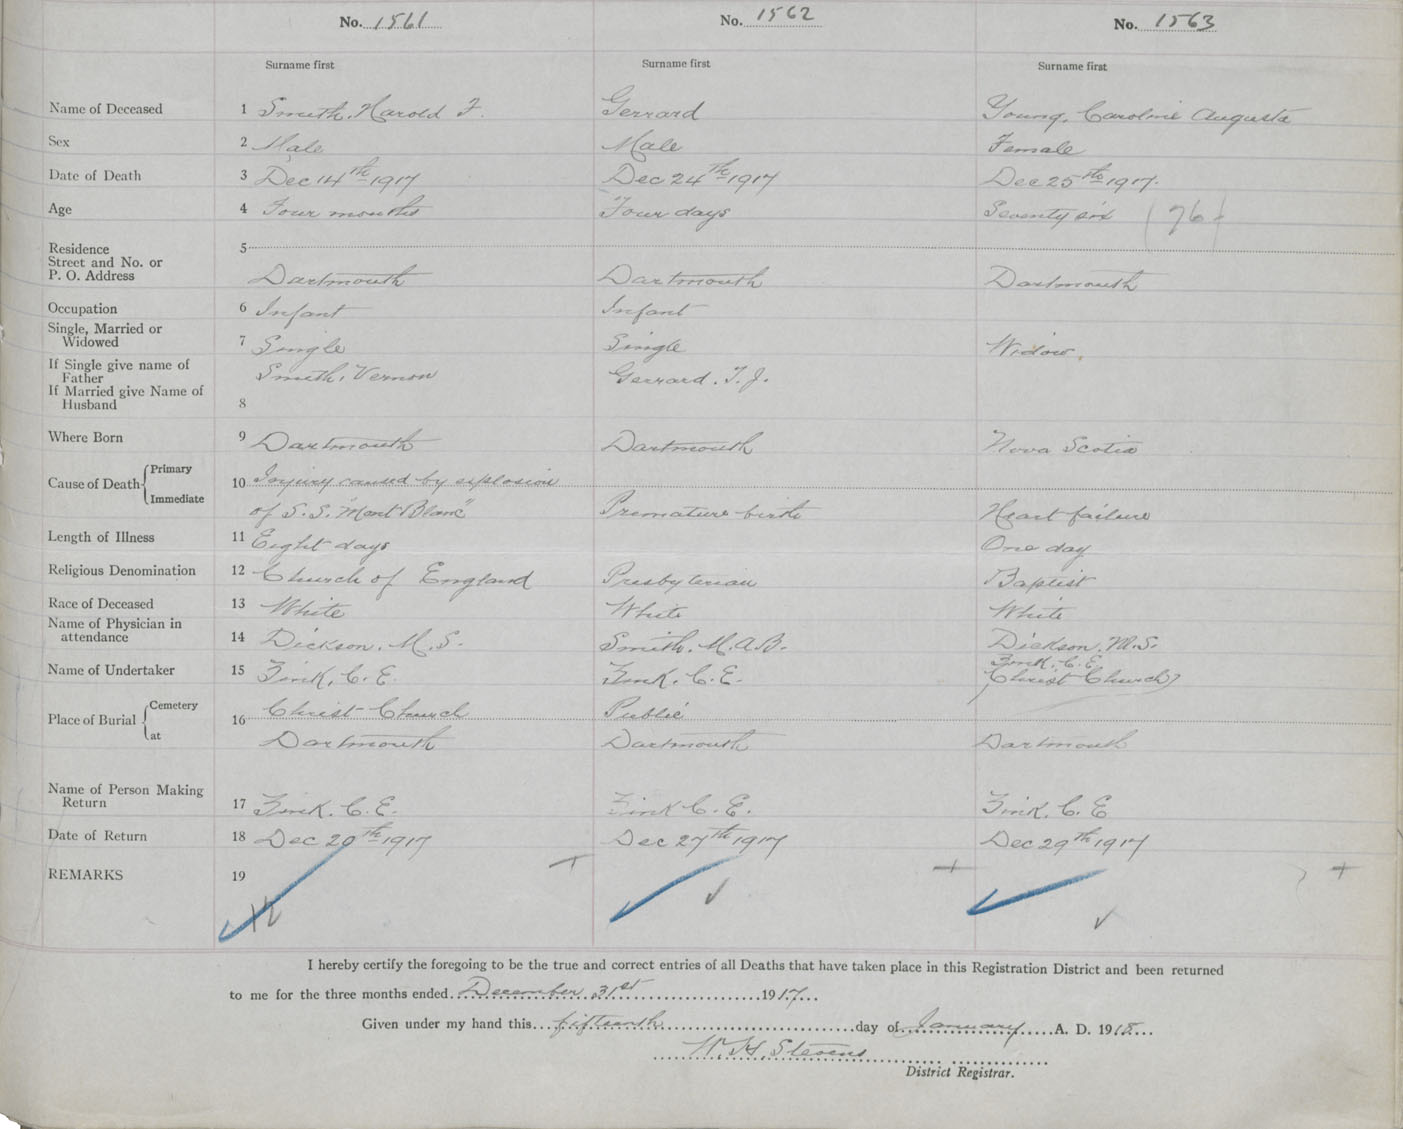 No. 1561 No. 1562 No. 1563
Surname first Surname first Surname first
Name of Deceased 1 Smith, Harold F. Gerrard Young, Caroline Augusta
Sex 2 Male Male Female
Date of Death 3 Dec 14th 1917 Dec 24th 1917 Dec 25th 1917.
Age 4 Four months Four days Seventy six (76)
Residence 5
Street and No. or
P. O. Address Dartmouth Dartmouth Dartmouth
Occupation 6 Infant Infant
Single, Married or
Widowed 7 Single Single Widow.
If Single give name of
Father Smith, Vernon Gerrard. T. J.
If Married give Name of
Husband 8
Where Born 9 Dartmouth Dartmouth Nova Scotia
Cause of Death Primary 10 Injury caused by explosion
Immediate of S.S. "Mont Blanc" Premature birth Heart failure
Length of Illness 11 Eight days One day
Religious Denomination 12 Church of England Presbyterian Baptist
Race of Deceased 13 White White White
Name of Physician in
attendance 14 Dickson. M. S. Smith. M. A. B. Dickson. M. S.
Name of Undertaker 15 Zink, C. E. Zink. C. E. Zink. C. E.
(Christ Church)
Place of Burial Cemetery 16 Christ Church Public
at Dartmouth Dartmouth Dartmouth
Name of Person Making
Return 17 Zink. C. E. Zink C. E. Zink. C. E
Date of Return 18 Dec 20th 1917 Dec 27th 1917 Dec 29th 1917
REMARKS 19
12
I hereby certify the foregoing to be the true and correct entries of all Deaths that have taken place in this Registration District and been returned
to me for the three months ended December 31st 1917
Given under my hand this fifteenth day of January A. D. 1918
W. H. Stevens
District Registrar.